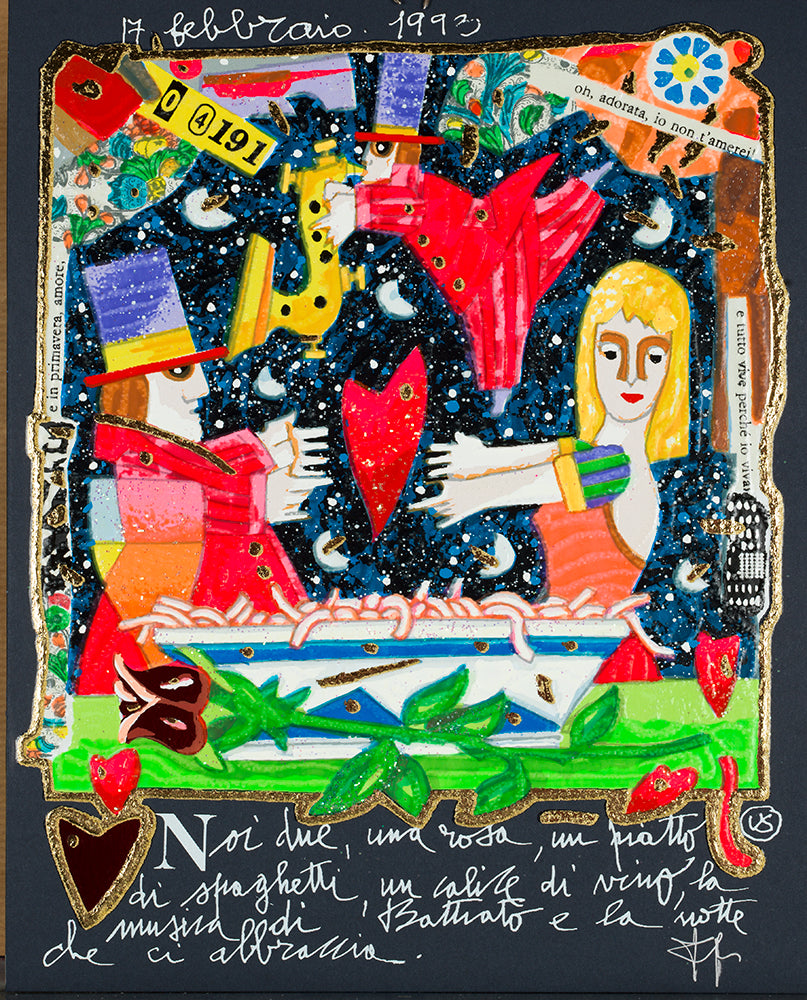 17 febbraio. 1993
0 4191
oh, adorata, io non t'amerei!
e in primavera, amore,
e tutto vive perché io viva
Noi due, una rosa, un piatto
di spaghetti, un calice di vino, la
musica di Battiato e la notte
che ci abbraccia.